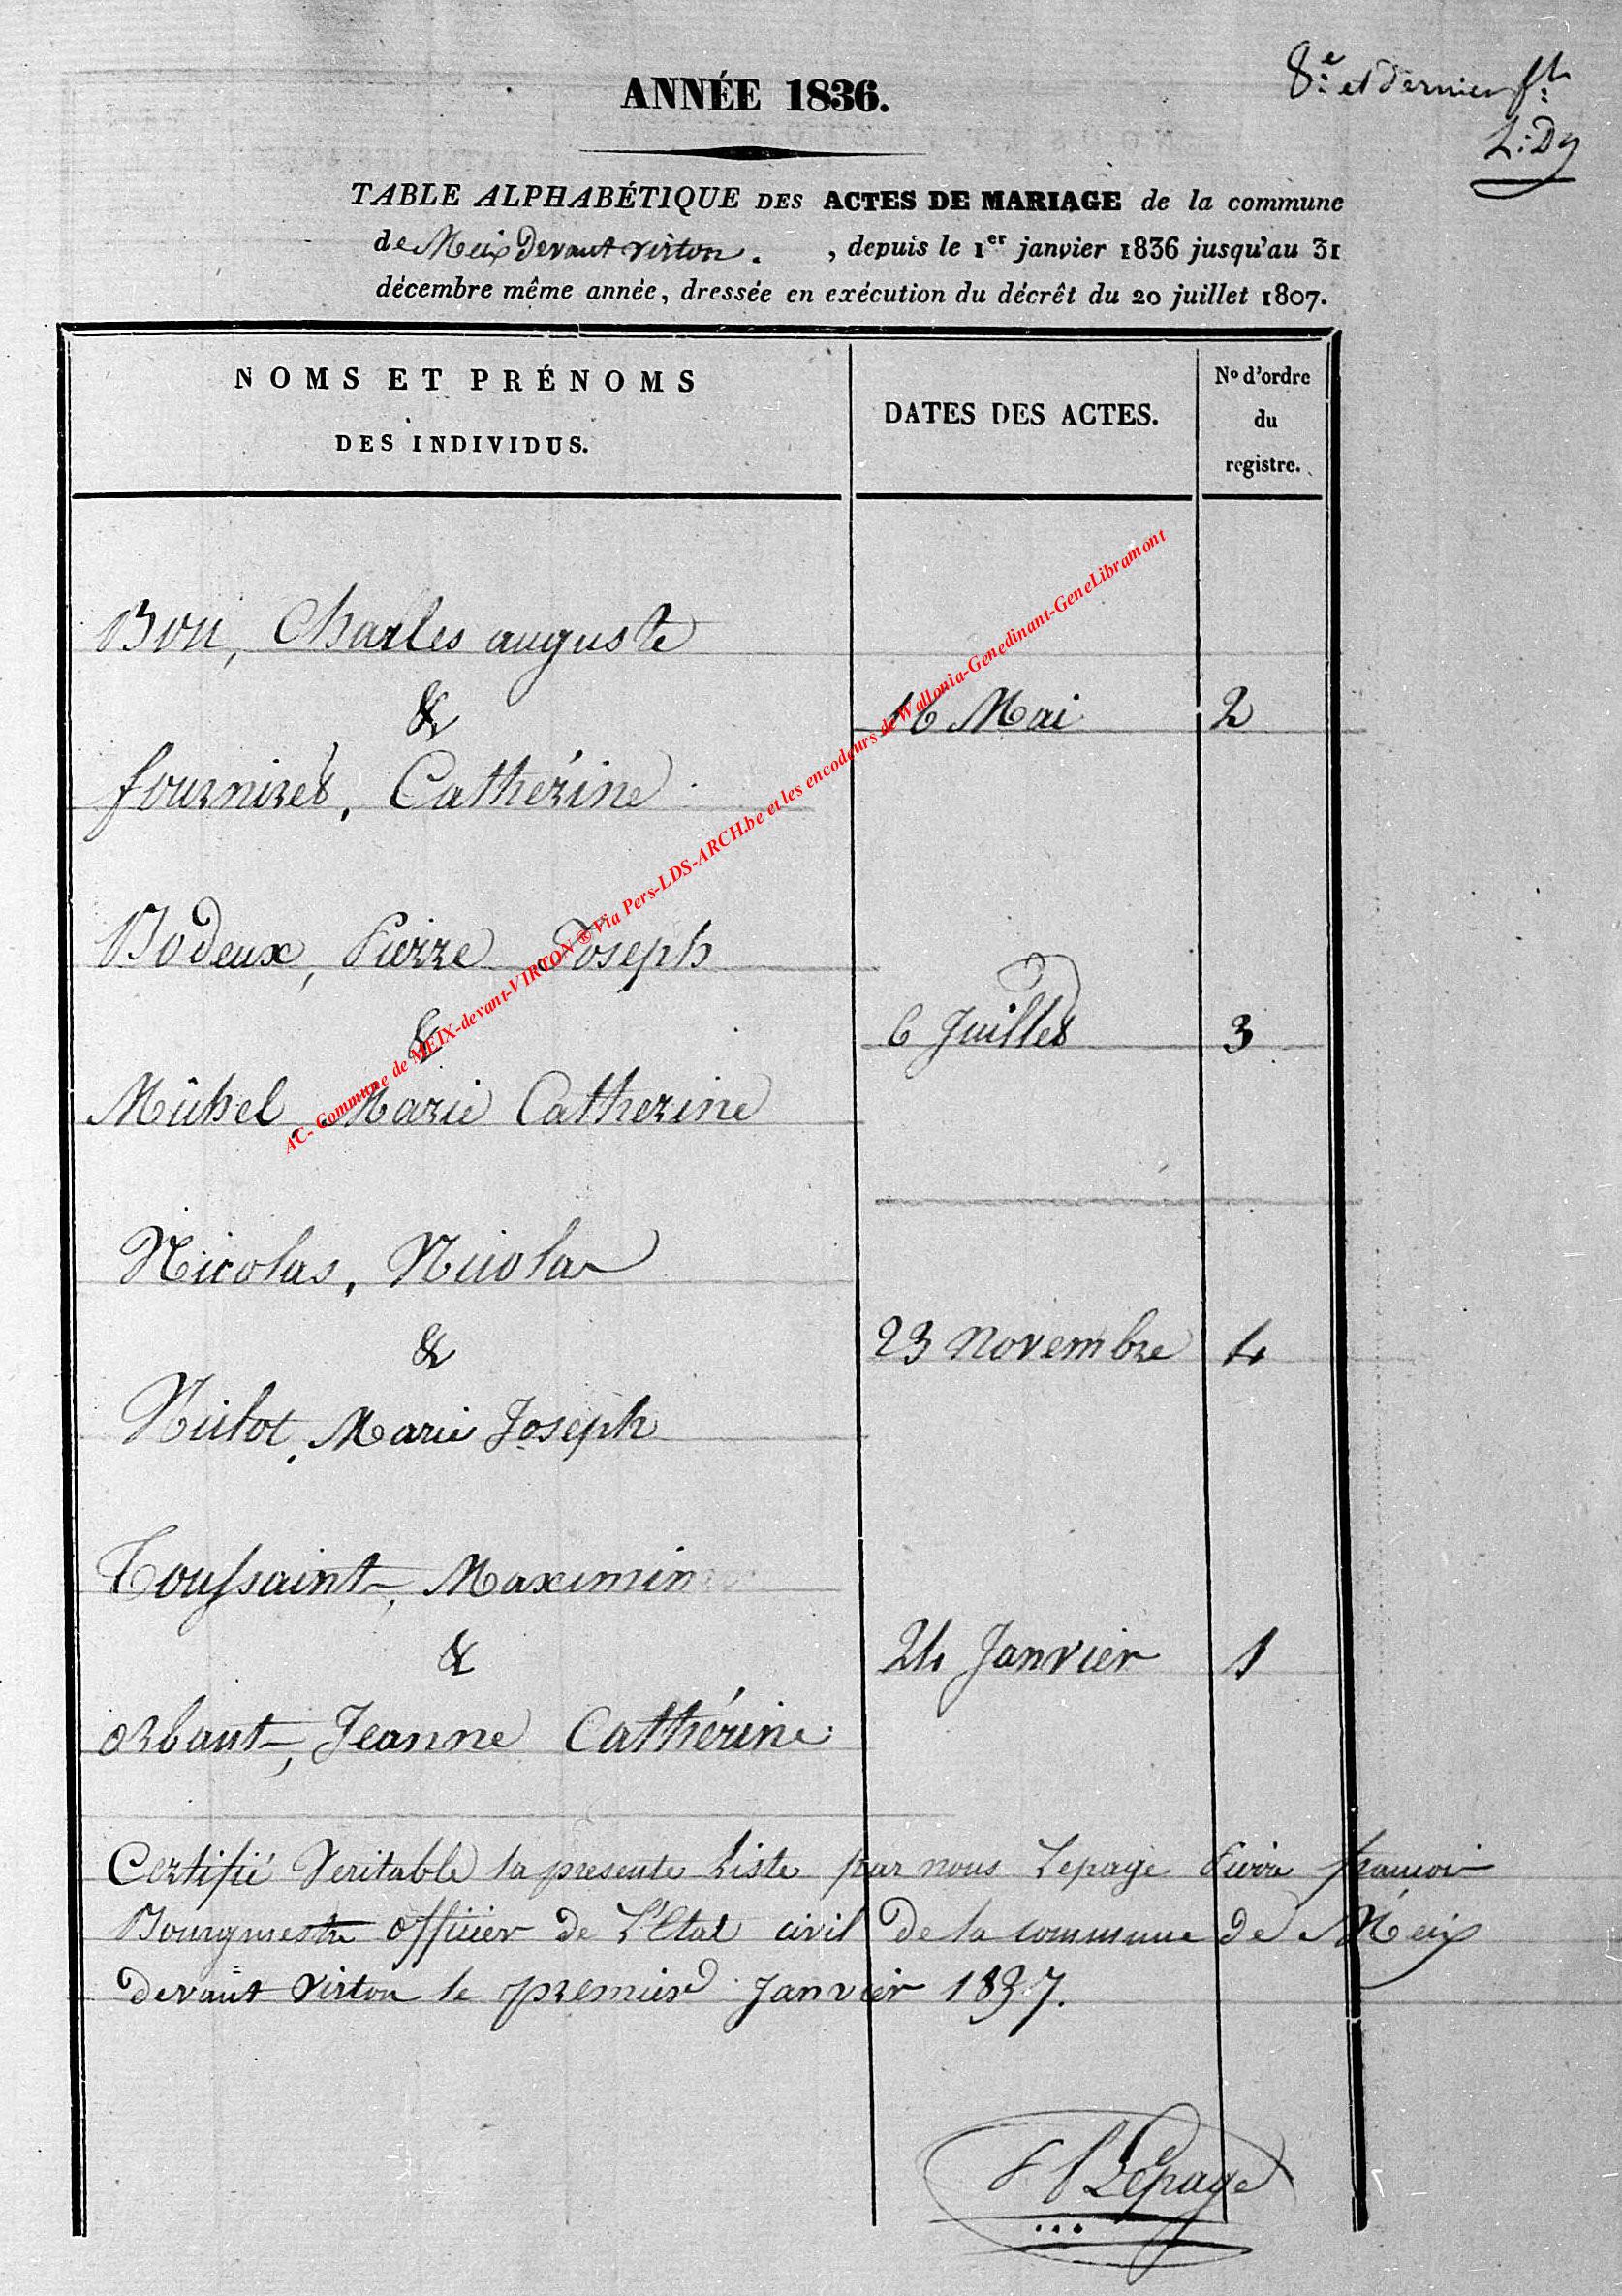 ANNÉE 1836.
8e et dernier ft
L: Dy
TABLE ALPHABÉTIQUE DES ACTES DE MARIAGE de la commune
de Meix Devant virton. , depuis le 1er janvier 1836 jusqu'au 31
décembre même année, dressée en exécution du décrêt du 20 juillet 1807.
NOMS ET PRÉNOMS
DES INDIVIDUS.
DATES DES ACTES.
No d'ordre
du
registre.
Bon, Charles auguste
&
16 Mai 2
Catherine
Bodeux, Pierre Joseph
&
6 Juillet 3
Michel, Marie Catherine
Nicolas, Nicolas
&
23 novembre 4
Marie Joseph
Toussaint, Maximin
&
24 Janvier 1
orbant, Jeanne Cathérine
Certifié Veritable la presente Liste par nous Lepage Pierre françois
Bourgmestre officier de L'Etat civil de la commune de Meix
devant Virton le premier Janvier 1837.
Lepage
AC- Commune de MEIX-devant-VIRTON ® Via Pers-LDS-ARCH.be et les encodeurs de Wallonia-Genedinant-GeneLibramont